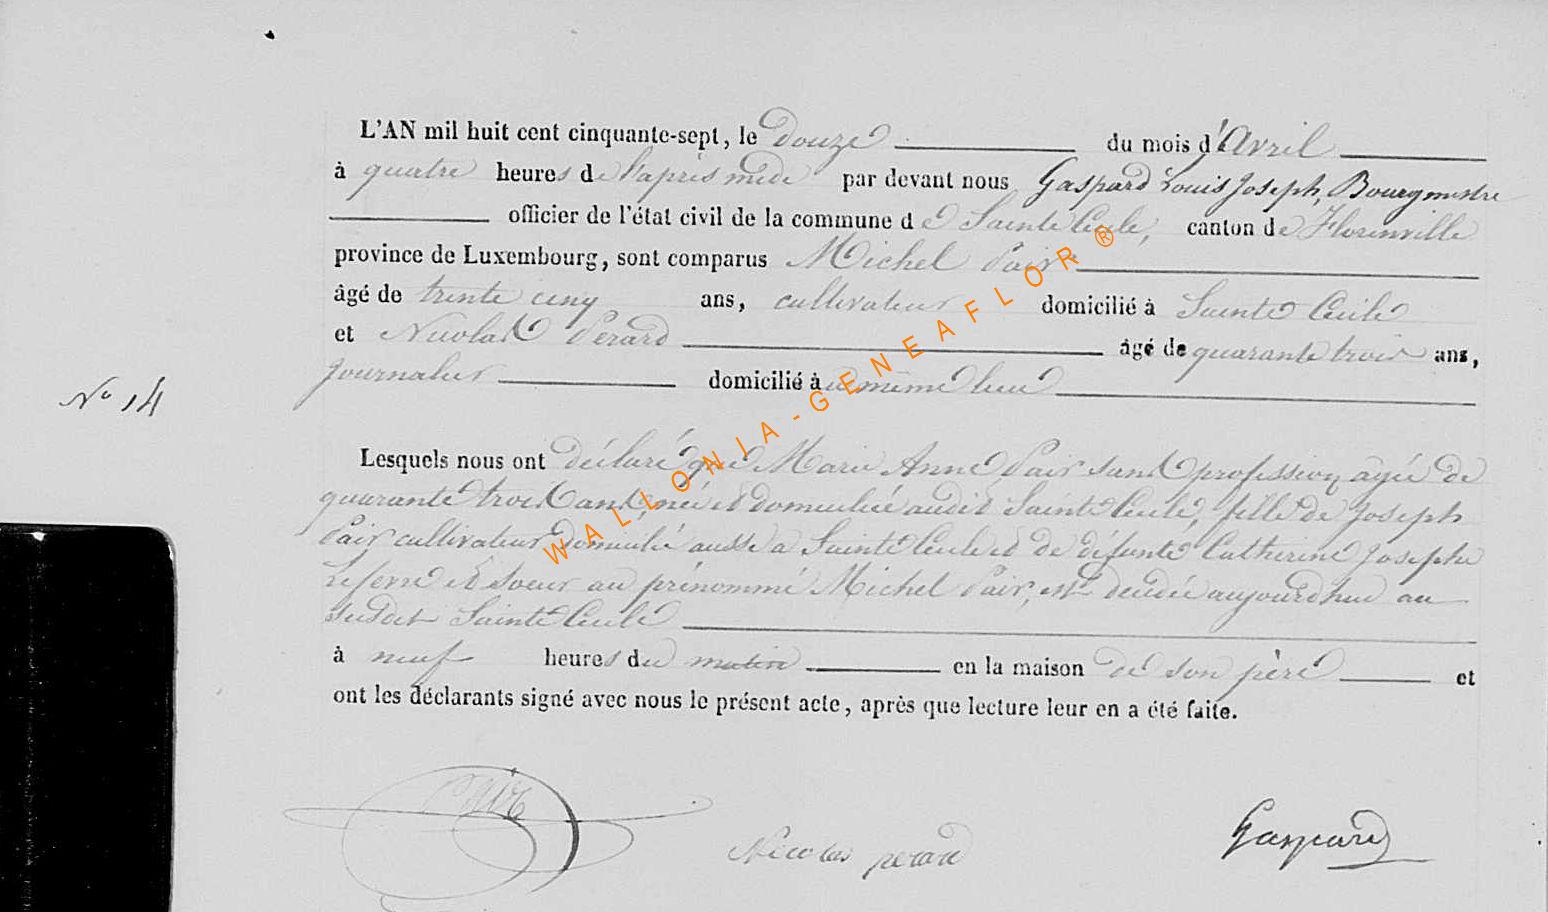 L'AN mil huit cent cinquante-sept, le douze du mois d'Avril
à quatre heures de l'après midi par devant nous Gaspard Louis Joseph, Bourgmestre
officier de l'état civil de la commune de Sainte Cécile, canton de Florenville
province de Luxembourg, sont comparus Michel Pair
âgé de trente cinq ans, cultivateur domicilié à Sainte Cécile
et Nicolas Perard âgé de quarante trois ans,
journalier domicilié au même lieu
No 14
Lesquels nous ont déclaré que Marie Anne Pair sans profession, âgée de
quarante trois ans, née et domiciliée audit Sainte Cécile, fille de Joseph
Pair cultivateur domicilié aussi à Sainte Cécile et de défunte Catherine Josephe
et soeur au prénommé Michel Pair, est décédée aujourd'hui au
susdit Sainte Cécile
à neuf heures du matin en la maison de son père et
ont les déclarants signé avec nous le présent acte, après que lecture leur en a été faite.
Pair
Nicolas perard
Gaspard
WALLONIA-GENEAFLOR ®